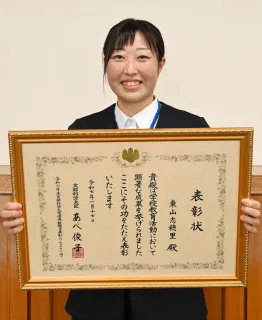 表彰状
東山志穂里 殿
貴殿は学校教育活動において
顕著な成果を挙げられました
ここにその功をたたえ表彰
いたします
令和七年一月十七日
文部科学大臣 あべ俊子